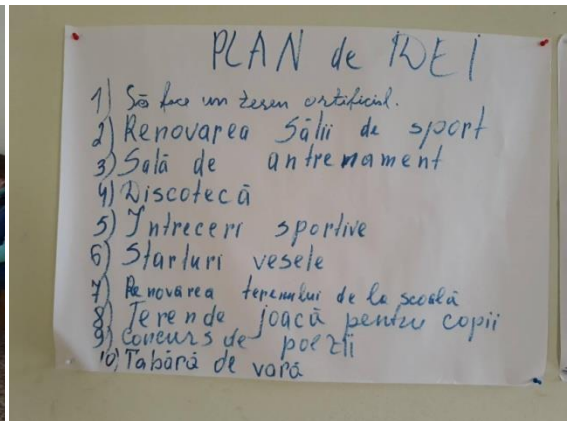 PLAN de IDEI
1) Să face un teren artificial.
2) Renovarea Sălii de sport
3) Sală de antrenament
4) Discotecă
5) Intreceri sportive
6) Starturi vesele
7) Renovarea terenului de la școală
8) Teren de joacă pentru copii
9) Concurs de poezii
10) Tabără de vară